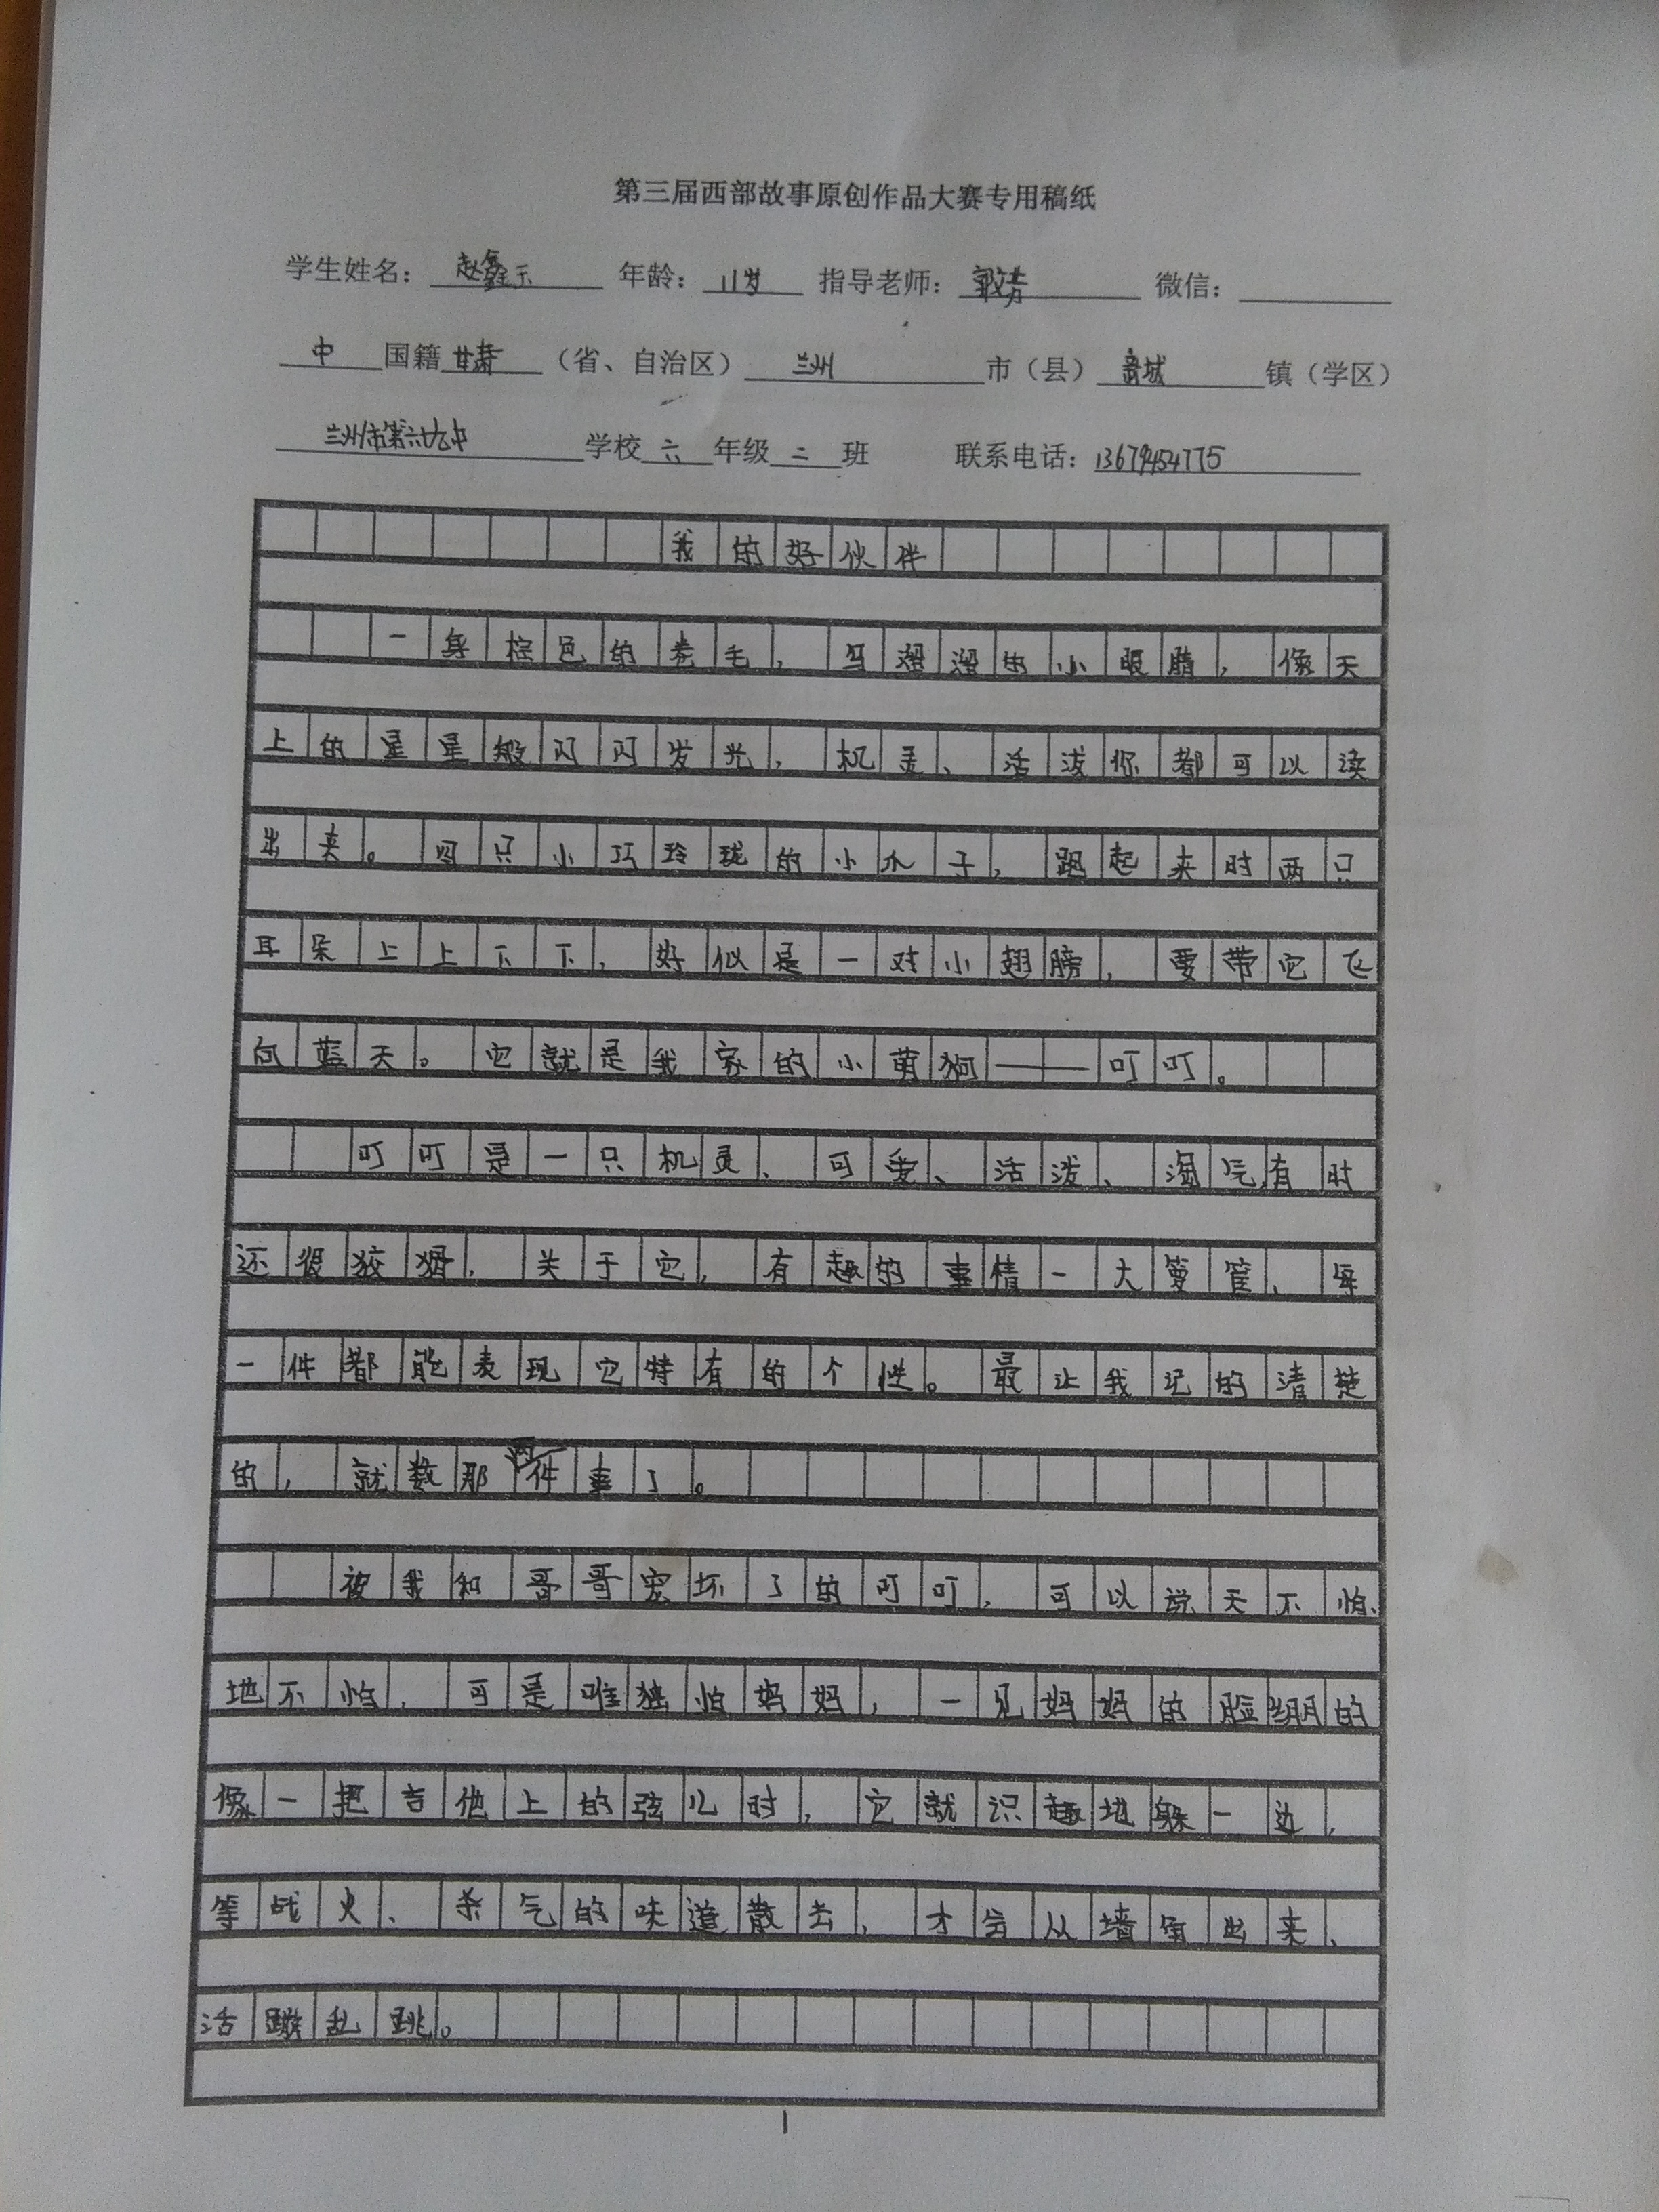 第三届西部故事原创作品大赛专用稿纸
学生姓名：赵鑫玉 年龄：11岁 指导老师：郭芳 微信：
中国籍甘肃（省、自治区）兰州市（县）青城镇（学区）
兰州市第六十九中学校六年级二班 联系电话：13679454775
我的好伙伴
一身棕色的卷毛，乌溜溜的小眼睛，像天
上的星星般闪闪发光，机灵、活泼你都可以读
出来。四只小巧玲珑的小爪子，跑起来时两只
耳朵上上下下，好似是一对小翅膀，要带它飞
向蓝天。它就是我家的小萌狗——叮叮。
叮叮是一只机灵、可爱、活泼、淘气，有时
还很狡猾，关于它，有趣的事情一大箩筐，每
一件都能表现它特有的个性。最让我记的清楚
的，就数那两件事了。
被我和哥哥宠坏了的叮叮，可以说天不怕、
地不怕，可是唯独怕妈妈，一见妈妈的脸绷的
像一把吉他上的弦儿时，它就识趣地躲一边，
等战火、杀气的味道散去，才会从墙角出来、
活蹦乱跳。
1